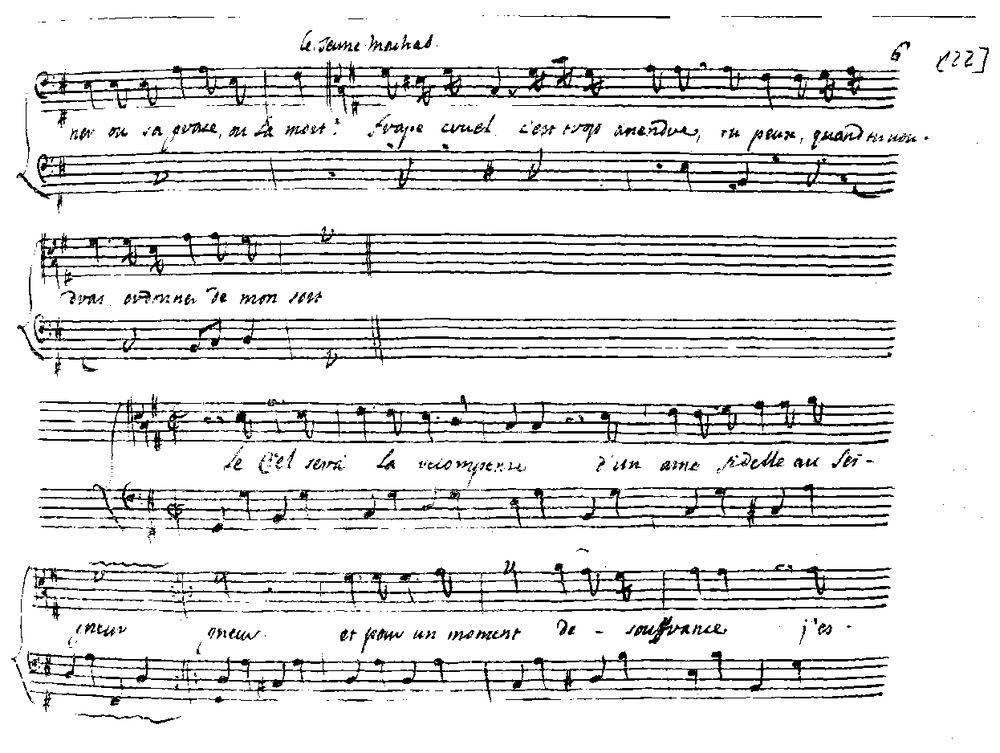 le Jeune Machab.
6 (22]
ner ou sa grace, ou la mort? frape cruel c'est trop atendre, tu peux, quand tu vou-
dras ordonner de mon sort
le Ciel sera la recompense d'un ame fidelle au Sei-
gneur gneur. et pour un moment de - souffrance j'es-